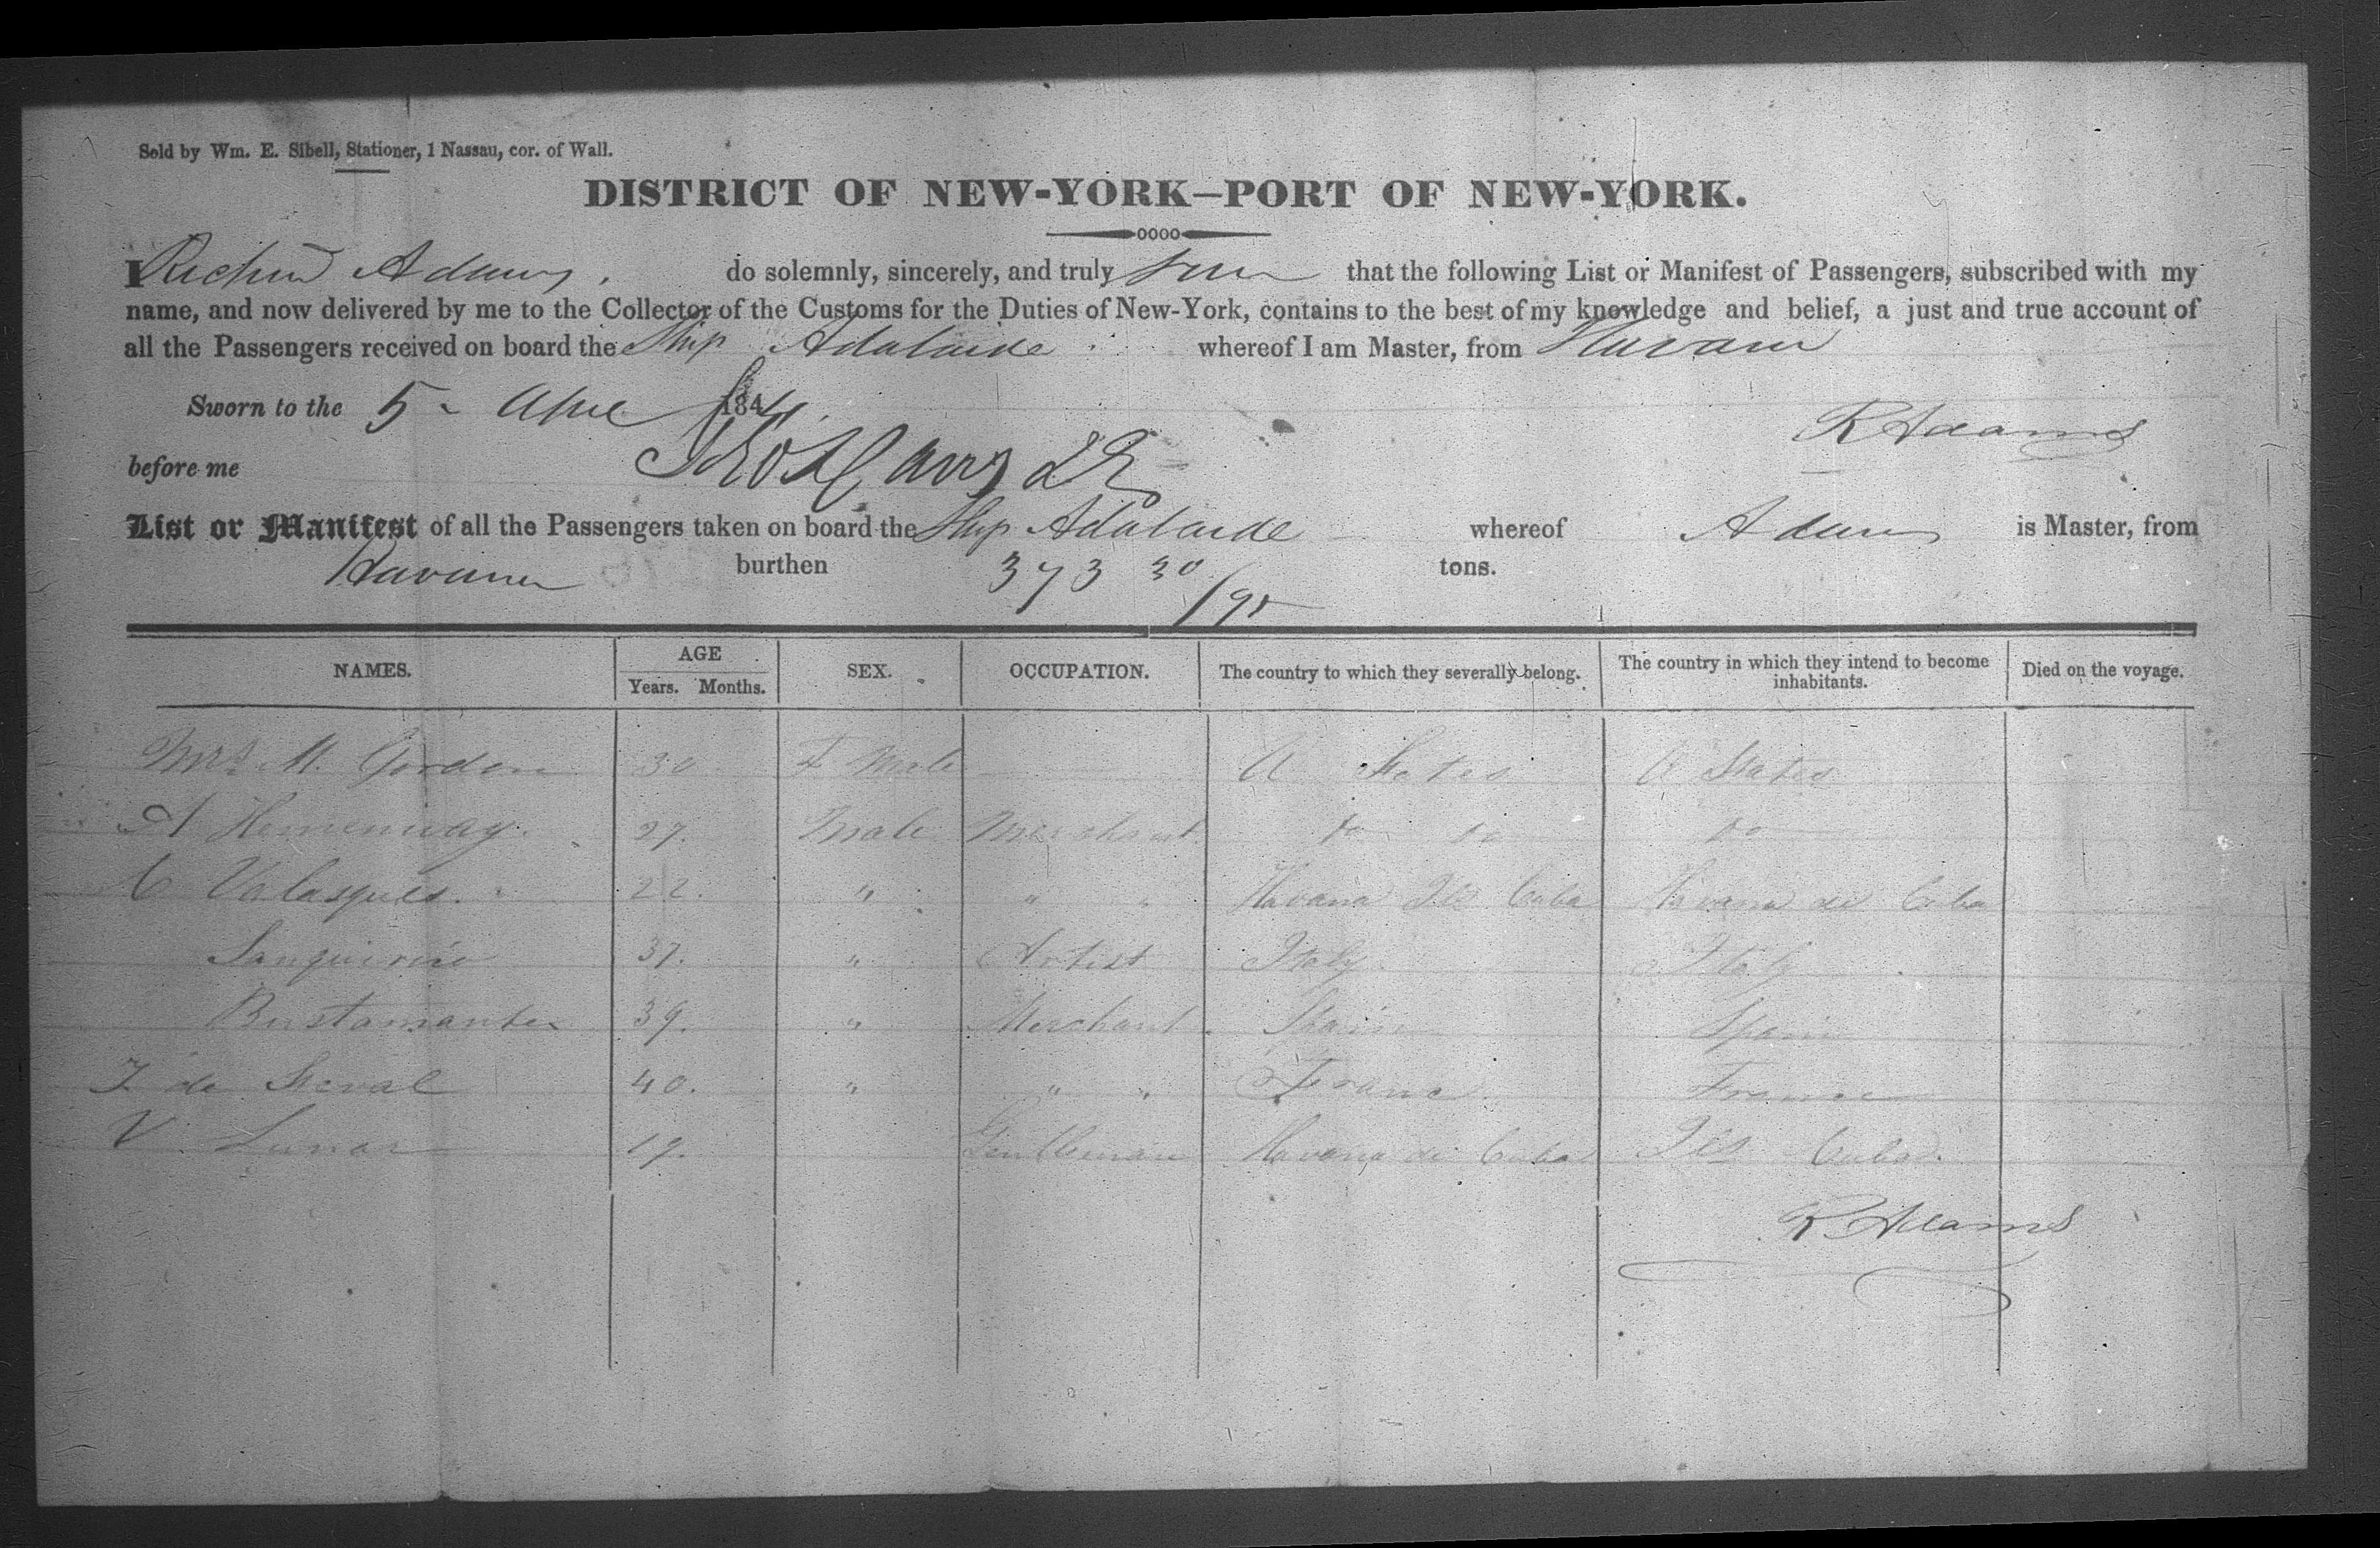 Sold by Wm. E. Sibell, Stationer, 1 Nassau, cor. of Wall.
DISTRICT OF NEW-YORK—PORT OF NEW-YORK.
I Richd Adams, do solemnly, sincerely, and truly that the following List or Manifest of Passengers, subscribed with my
name, and now delivered by me to the Collector of the Customs for the Duties of New-York, contains to the best of my knowledge and belief, a just and true account of
all the Passengers received on board the Ship Adalaide whereof I am Master, from Havana
Sworn to the 5 - 184
R Adams
before me
List or Manifest of all the Passengers taken on board the Ship Adalaide whereof Adams is Master, from
Havana burthen 373 30/95 tons.
NAMES. AGE SEX. OCCUPATION. The country to which they severally belong. The country in which they intend to become inhabitants. Died on the voyage.
Years. Months.
Mrs. M. Gordon 30 F Male U States U States
A Hemenway. 27. Male Merchant do do do
C Valasques. 22. " " " Havana Ils Cuba Havana de Cuba
Sanquirico 37. " Artist Italy Italy
Bustamante 39. " Merchant Spain Spain
de 40. " " " France France
V. Lunar 19. Gentleman Havana de Cuba Ils Cuba.
R Adams